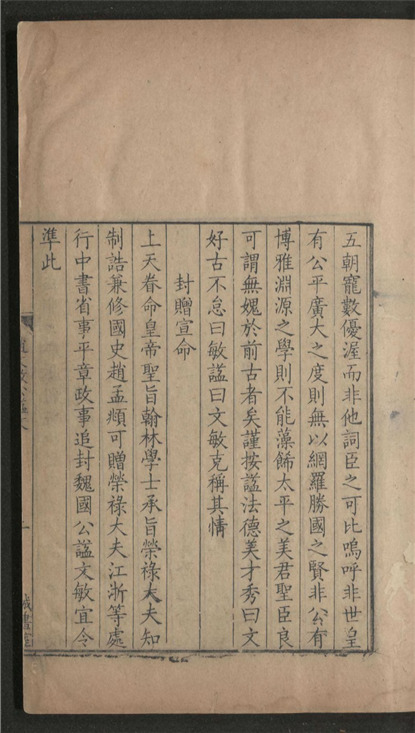 五朝寵數優渥而非他詞臣之可比嗚呼非世皇
有公平廣大之度則無以網羅勝國之賢非公有
博雅淵源之學則不能藻餙太平之美君聖臣良
可謂無媿於前古者矣謹按謚法德美才秀曰文
好古不怠曰敏謚曰文敏克稱其情
封贈宣命
上天眷命皇帝聖旨翰林學士承旨榮祿大夫知
制誥兼修國史趙孟頫可贈榮祿大夫江浙等處
行中書省事平章政事追封魏國公謚文敏宜令
準此